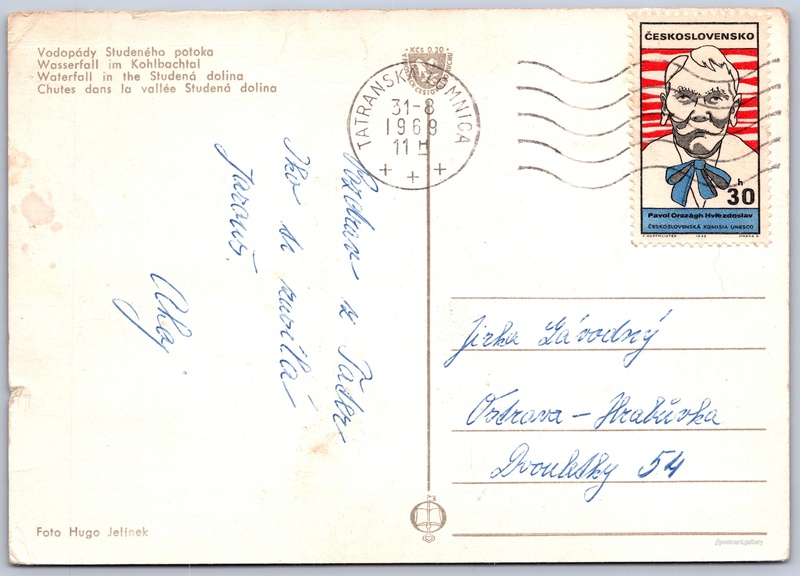 Vodopády Studeného potoka
Wasserfall im Kohlbachtal
Waterfall in the Studená dolina
Chutes dans la vallée Studená dolina
Kčs 0,20
TATRANSKÁ LOMNICA
31-8
1969
11 H
ČESKOSLOVENSKO
30 h
Pavol Országh Hviezdoslav
ČESKOSLOVENSKÁ KOMISIA UNESCO
Pozdrav z Tater
Jarouš.
Ahoj
Jirka Závodský
Ostrava - Hrabůvka
Dvouletky 54
Foto Hugo Jelínek